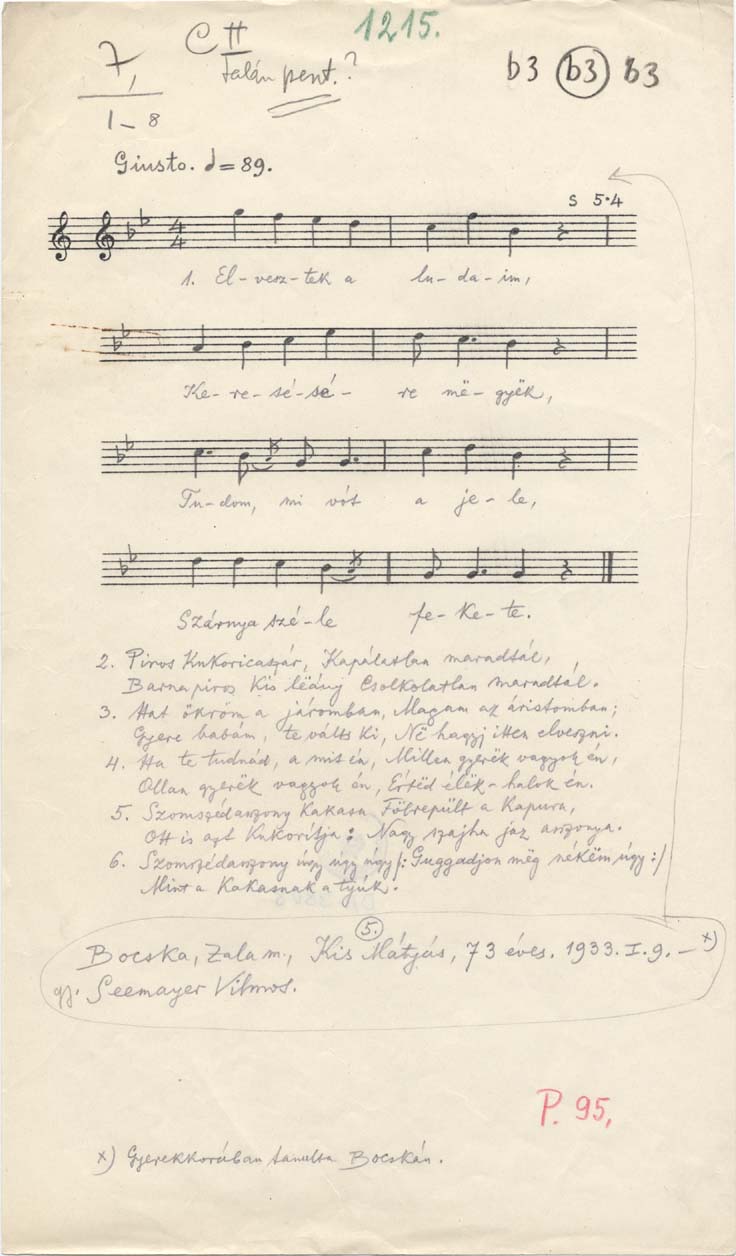 1215.
7,
1–8
C II
Talán pent.?
b3 (b3) b3
Giusto. 𝅗𝅥 = 89.
S 5·4
1. El-vesz-tek a lu-da-im,
Ke-re-sé-sé- re më-gyëk,
Tu-dom, mi vót a je-le,
Szárnya szé-le fe-ke-te.
2. Piros kukoricaszár, Kapálatlan maradtál,
Barnapiros kis lëány Csolkolatlan maradtál.
3. Hat ökröm a járomban, Magam az áristomban;
Gyere babám, te válts ki, Në hagyj itten elveszni.
4. Ha te tudnád, a mit én, Millen gyerëk vagyok én,
Ollan gyerëk vagyok én, Értëd élëk-halok én.
5. Szomszédasszony kakasa Fölrepült a kapura,
Ott is azt kukorítja: Nagy szajha jaz asszonya.
6. Szomszédasszony úgy úgy úgy /: Guggadjon mëg nékëm úgy :/
Mint a kakasnak a tyúk.
5.
Bocska, Zala m., Kis Mátyás, 73 éves. 1933. I. 9. – x)
gy. Seemayer Vilmos.
P. 95,
x) Gyerekkorában tanulta Bocskán.